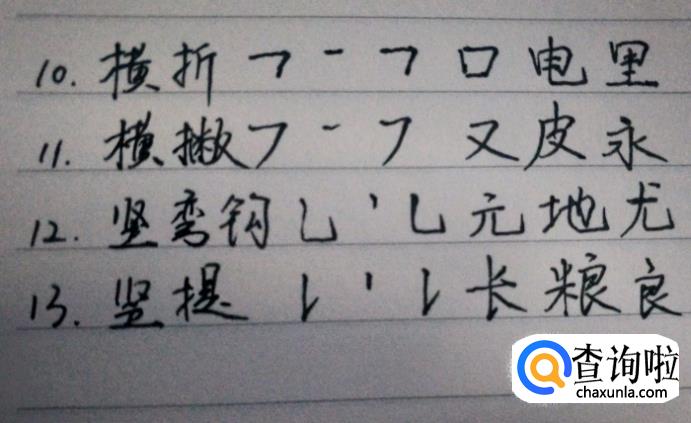 10. 横折 ㇕ ㇐ ㇕ 口 电 里
11. 横撇 ㇇ ㇐ ㇇ 又 皮 永
12. 竖弯钩 乚 丨 乚 元 地 尤
13. 竖提 ㇙ 丨 ㇙ 长 粮 良
查询啦
chaxunla.com